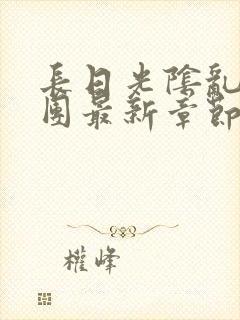 長日光陰亂
團最新章節
權峰